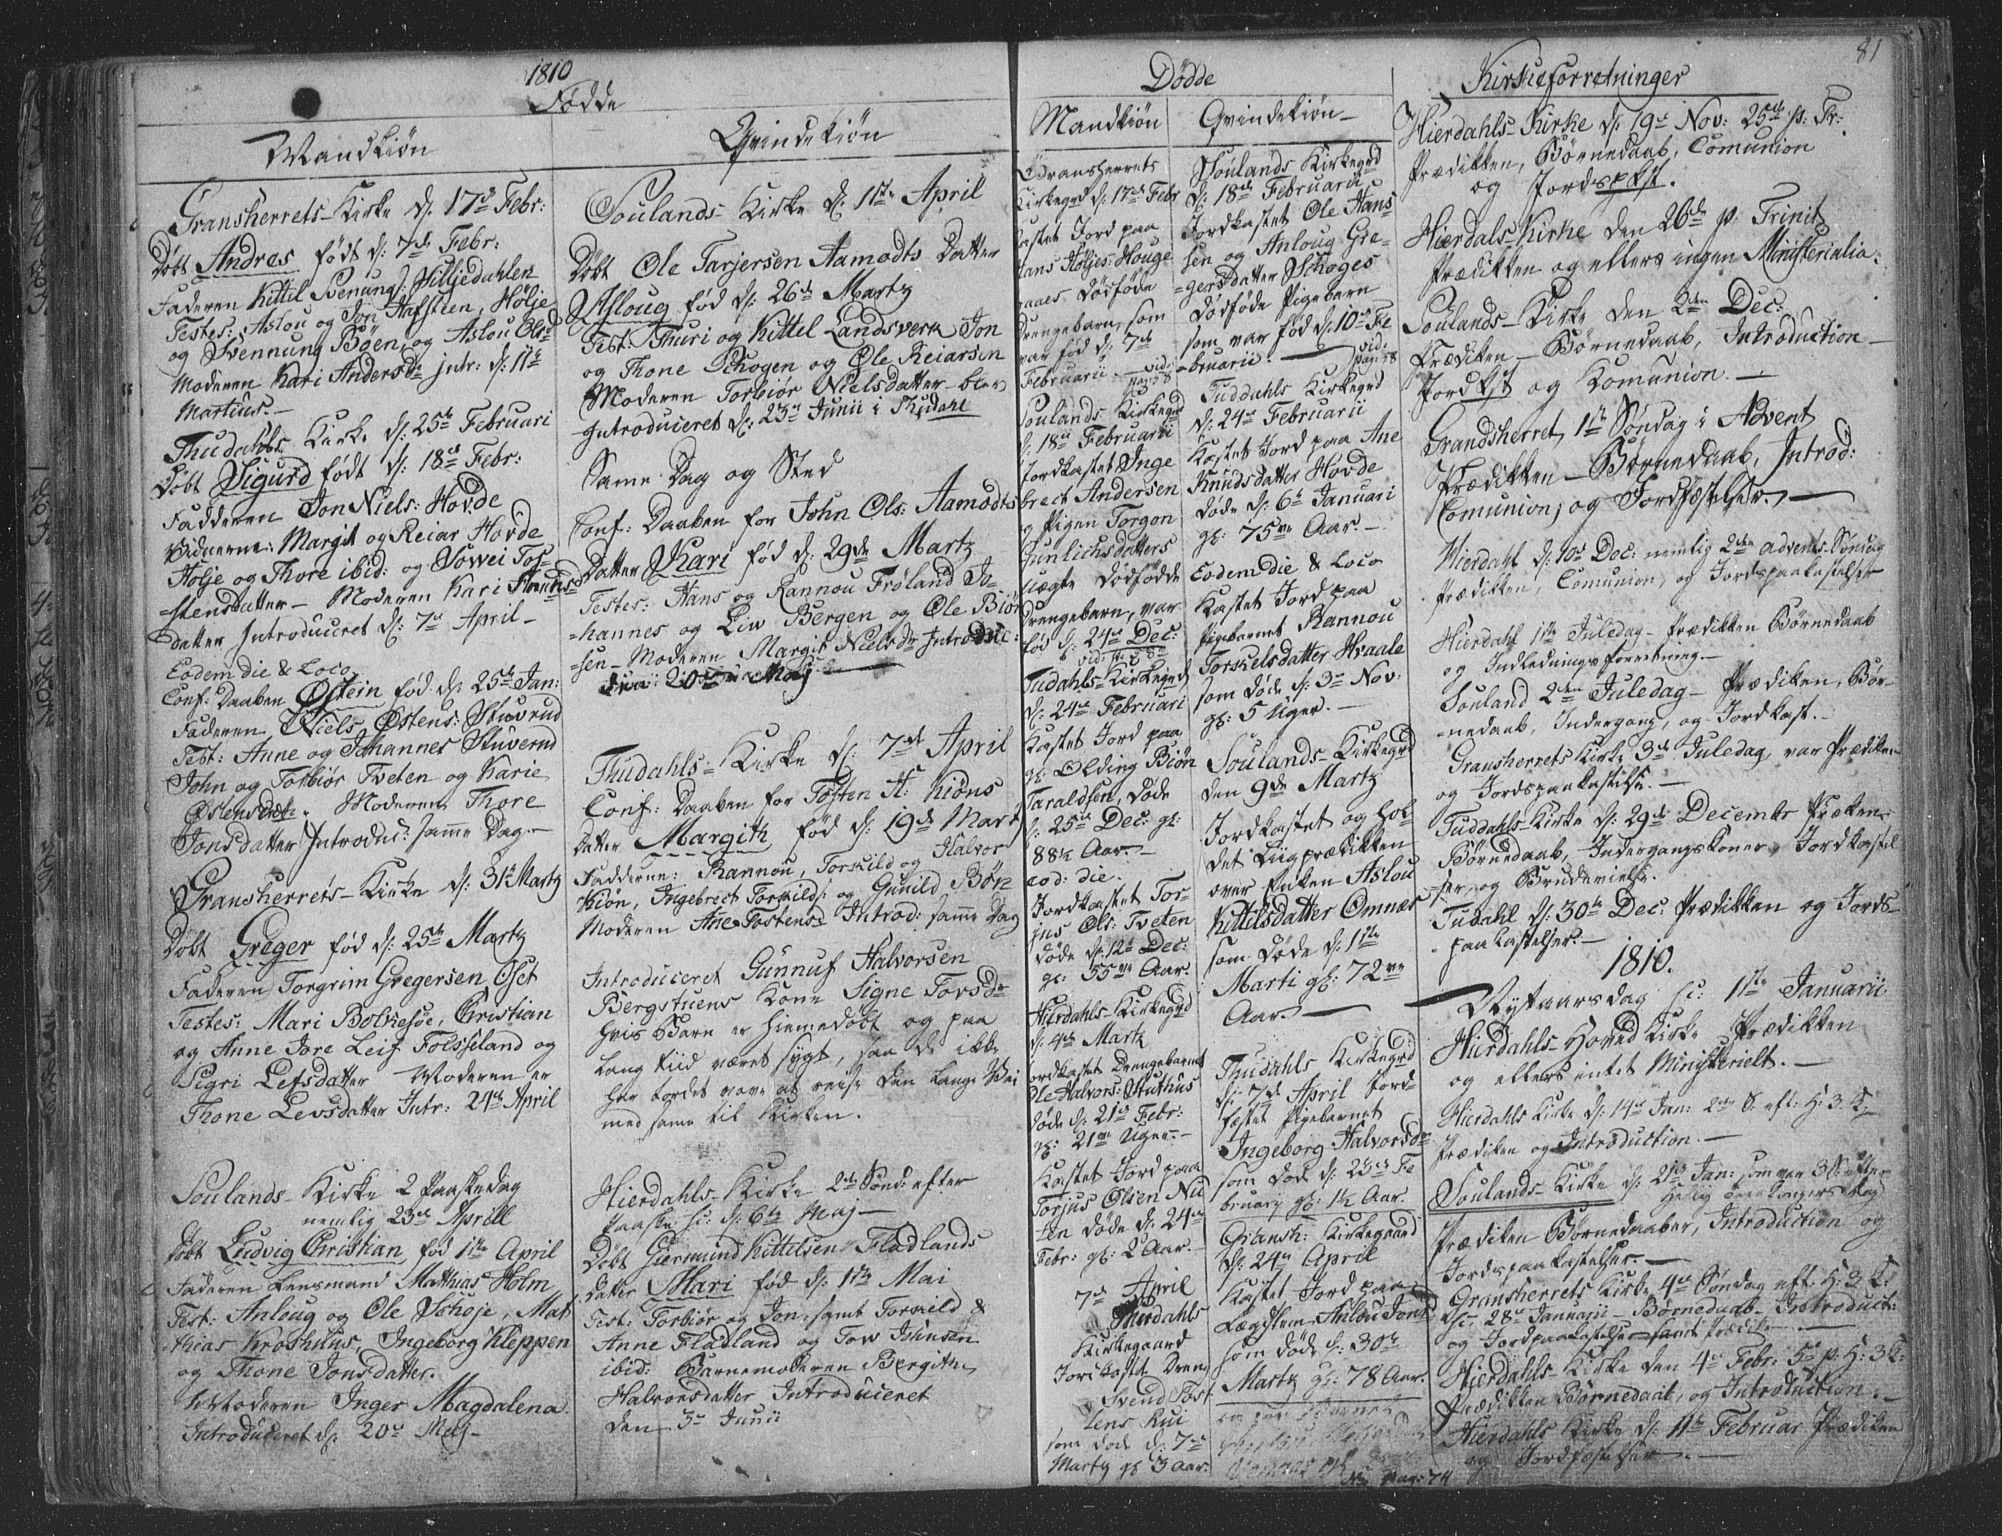 1810
Fødde
Mandkiøn
Gransherrets Kirke d: 17de Febr:
Døbt Andres født d: 7de Febr:
Faderen Kittil Svenungs: Siljedahlen
Testes: Aslou og Jon Hafsteen, Hølje
og Svennung Bøen, og Aslou Olsd
Moderen Kari Andersdr jntr: d: 11te
Martius.-
Thudahls Kirke d: 25de Februari
Døbt Sigurd født d: 18de Febr:
Fadderen Jon Niels: Hovde
Vidnerne: Margit og Reiar Hovde
Holje og Thore ibid: og Sowei Tos-
-stensdatter - Moderen Kari Amunds
datter Introduceret d: 7de April -
Eodem die & Loco
Conf: Daaben Østein fød d: 25de Jan:
Faderen Niels Østens: Stuvrud
Test: Anne og Johannes Stuverud
John og Torbiør Tveten og Karie
Østensdatr. Moderen Thore
Jonsdatter Introduc: samme Dag.-
Gransherrets-Kirke d: 31te Martz
Døbt Greger fød d: 25de Martz
Faderen Torgrim Gregersen Oset
Testes: Mari Bolkesøe, Christian
og Anne Jore Leif Folseland og
Sigri Lefsdatter Moderen er
Thone Levsdatter Intr: 24de April
Soulands-Kirke 2 Paaskedag
nemlig 23de Aprill
døbt Ludvig Christian fød 1ste April
Faderen Lensmand Matthias Holm
Test: Anloug og Ole Skoje, Mat
-thias Kroshuus, Ingeborg Kleppen
og Thone Jonsdatter.
Moderen Inger Magdalena
Introduceret d: 20de Maj-
Qvindekiøn
Soulands-Kirke d: 1ste April
Døbt Ole Tarjersen Aamodts Datter
Asloug fød d: 26de Martz
Test: Thuri og Kittel Landsverk Jon
og Thone Schogen og Ole Reiarsen
Moderen Torbiør Nielsdatter blev
Introduceret d: 23de Junii i Thudahl
Same Dag og Sted
Conf: Daaben for John Ols: Aamodts
Datter Kari fød d: 29de Martz
Testes: Hans og Rannou Frøland Jo-
-hannes og Liw Bergen og Ole Biør
-sen - Moderen Margit Nielsdr Introdue:
d: 20de Maj
Thudahls-Kirke d: 7de April
Conf: Daaben for Tosten H: Kiøns
Datter Margith fød d: 19de Martz
Fadderne: Rannou, Torskild og Halvor
Kiøn, Ingebrect Torkilds: og Gunild Bøn
Moderen Ane Tostensd Introd: samme Dag
Introduceret Gunnuf Halvorsen
Bergstuens Kone Signe Torsdr
hvis Barn er hiemedøbt og paa
lang tiid været sygt, saa de ikke
har tordet vove at reise den lange Vei
med samme til Kirken.
Hierdahls-Kirke 2de Sønd: efter
Paaske sc: d: 6te Maj -
Døbt Giermund Kittelsen Fladlands
Datter Mari fød d: 1ste Mai
Test: Torbiør og Jon, samt Torkield &
Anne Fladland og Tow Johnsen
ibid: Barnemoderen Bergith
Halvorsdatter Introduceret
den 3de Junii
Dødde
Mandkiøn
Gransherrets
Kirkegrd d: 17de Febr
kastet Jord paa
Hans Høljes: Houge
gaaes dødføde
Drengebarn, som
var fød d: 7de
Februarii - vid:
pag: 8
Soulands Kirkegrd
d: 18de Februarii
Jordkastet Inge
brect Andersen
og Pigen Torgon
Gunlichsdatters
uægte dødfødde
Drengebarn, var
fød d: 24de Dec:
Tudahls-Kirkegrd
d: 24de Februari
Kastet Jord paa
gl: Olding Biøn
Taraldsen, døde
d: 25de Dec: gl:
88½ Aar.-
eod: die.
Jordkastet Tor-
jus Ols: Tveten
døde d: 12te Dec:
gl: 55ve Aar.
Hierdahls-Kirkegrd
d: 4de Martz
Jordkastet Drengebarnet
Ole Halvors: Stuthus
døde d: 21de Febr:
gl: 21ve Uger.-
Kastet Jord paa
Torjus Olsen Nu
ten døde d: 24de
Febr: gl: 2 Aar.-
7de April
Hierdahls
Kirkegaard
Jordkastet Dreng
Svend Tost
som døde d: 7de
Martz gl: 3 Aar:
Qvindekiøn-
Soulands Kirkegrd
d: 18de Februarii
Jordkastet Ole Hans
sen og Anloug Gre-
-gersdatter Skoges
dødføde Pigebarn
som var fød d: 10de Fe
-bruarii. - vid:
pag: 58
Tuddahls Kirkegrd
d: 24de Februarii
Kastet Jord paa Ane
Knudsdatter Hovde
døde d: 6te Januari
gl: 75ve Aar.-
Eodem die & Loco
Kastet Jord paa
Pigebarnet Rannou
Torskelsdatter Hvaale
som døde d: 3de Nov:
gl: 5 Uger.-
Soulands-Kirkegrd
den 9de Martz
Jordkastet og hol-
det Liigprædikken
over Enken Aslou
Kittilsdatter Omnæs
som døde d: 1ste
Marti gl: 72ve
Aar.-
Thudahls Kirkegrd
d: 7de April Jord-
fæstet Pigebarnet
Ingeborg Halvorsdr
som døde d: 23de Fe
bruarij gl: 1½ Aar.
Gransh: Kirkegaard
d: 24de April
Kastet Jord paa
Lægdslem Aslou Jonsd
som døde d: 30te
Martz gl: 78 Aar.
pag: 74
81
Kirkeforretninger
Hierdahls-Kirke d: 19de Nov: 25de p: Tr:
Prædikken, Børnedaab, Comunion
og Jordspkst.
Hierdals-Kirke den 26de p. Trinit
Prædikken og ellers ingen Ministerialia.
Soulands-Kirke den 2den Dec:
Prædiken - Børnedaab, Introduction -
Jordkst og Komunion.-
Grandsherret 1ste Søndag i Advent
Prædikken - Børnedaab, Introd:
Comunion, og Jordfæstelser.-
Hierdahl d: 10de Dec: nemlig 2den Advents-Søndag
Prædikken, Comunion, og Jordspaakastelser
Hierdahl 1ste Juledag - Prædikken Børnedaab
og Indledningsforretning.-
Souland 2den Juledag - Prædiken, Bør-
-nedaab, Indergang, og Jordkast.-
Gransherrets Kirke 3de Juledag var Prædiken
og Jordspaakastelse.-
Tuddahls-Kirke d: 29de Decembr Præken,
Børnedaab, Indergangskoner, Jordkastel
ser, og Brudevielse.
Tudahl d: 30te Dec: Prædikken og Jords-
paakastelser.-
1810.
Nytaarsdag sc: 1ste Januarii
Hierdahls-Hoved Kirke Prædikken
og ellers intet Ministerielt.-
Hierdahls Kirke d: 14de Jan: 2den S. eft: H: 3 K:
Prædiken og Introduction.-
Soulands-Kirke d: 21de Jan: som var 3 S: efter
Hellig tre Kongers Dag
Prædiken Børnedaaber, Introduction og
Jordspaakastelser.-
Gransherrets Kirke 4de Søndag eft: H: 3 K:
sc: 28de Januarii - Børnedaab - Introduct:
og Jordpaakastelser samt Prædike -
Hierdahls-Kirke den 4de Febr: 5te p: H: 3 K:
Prædikken Børnedaab, og Introduction.
Hierdahls Kirke d: 11te Februar Prædiken
og Jordfæstelser.-